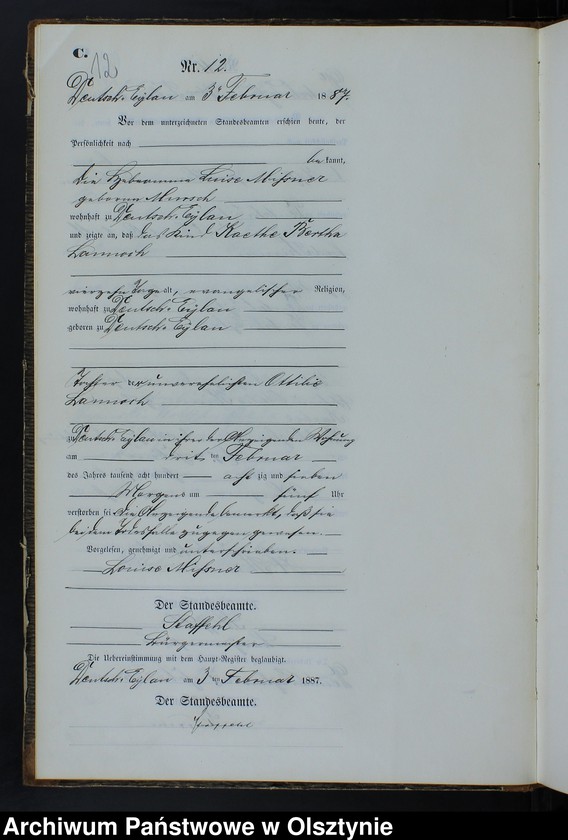 C.
12
Nr. 12.
Deutsch-Eylau am 3ten Februar 1887.
Vor dem unterzeichneten Standesbeamten erschien heute, der
Persönlichkeit nach
bekannt,
die Hebeamme Luise
geborene
wohnhaft zu Deutsch-Eylau
und zeigte an, daß das Kind Kaethe Bertha
vierzehn Tage alt, evangelischer Religion,
wohnhaft zu Deutsch-Eylau
geboren zu Deutsch-Eylau
Tochter der unverehelichten Ottilie
zu Deutsch-Eylau in ihrer der Anzeigenden Wohnung
am dritten Februar
des Jahres tausend acht hundert achtzig und sieben
Morgens um fünf Uhr
verstorben sei. Die Anzeigende bemerkt, daß sie
bei dem Todesfalle zugegen gewesen.
Vorgelesen, genehmigt und unterschrieben.
Louise
Der Standesbeamte.
Staffehl
Bürgermeister
Die Uebereinstimmung mit dem Haupt-Register beglaubigt.
Deutsch-Eylau am 3ten Februar 1887.
Der Standesbeamte.
Staffehl
Archiwum Państwowe w Olsztynie